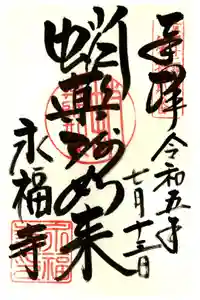 奉拝
令和五年
七月十三日
蛸薬師如来
永福寺